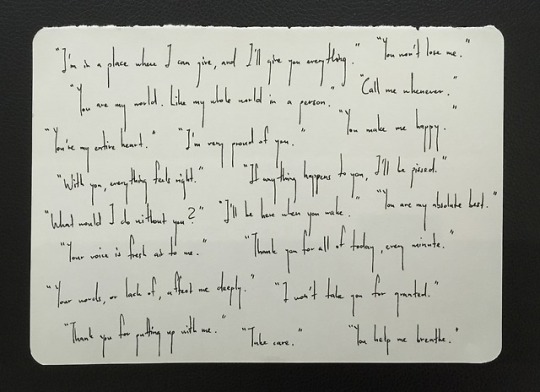 "I'm in a place where I can give, and I'll give you everything." "You won't lose me."
"You are my world. Like my whole world in a person." "Call me whenever."
"You're my entire heart." "I'm very proud of you." "You make me happy."
"With you, everything feels right." "If anything happens to you, I'll be pissed."
"What would I do without you?" "I'll be here when you wake." "You are my absolute best."
"Your voice is fresh air to me." "Thank you for all of today, every minute."
"Your words, or lack of, affect me deeply." "I won't take you for granted."
"Thank you for putting up with me." "Take care." "You help me breathe."